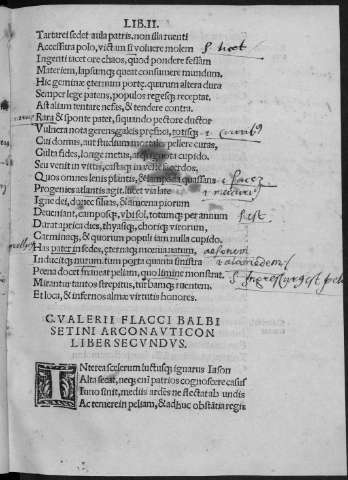 LIB.II.
Tartarei sedet aula patris. non illa ruenti
Accessura polo, victam si voluere molem
Ingenti iacet ore chaos, quod pondere fessam
Materiem, lapsumq; queat consumere mundum.
Hic geminæ ęternum portę. quarum altera dura
Semper lege patens, populos regesq; receptat.
Ast aliam tentare nefas, & tendere contra.
Rara & sponte patet, siquando pectore ductor
Vulnera nota gerens, galeis pręfixa, rotisq;
Cui domus, aut studium mortales pellere curas,
Culta fides, longe metus, atq; ignota cupido.
Seu venit in vittis, castaq; in veste sacerdos.
Quos omnes lenis plantis, & lampada quassans
Progenies atlantis agit. lucet via late
Igne dei, donec siluas, & amœna piorum
Deueniant, camposq; vbi sol, totumq; per annum
Durat aprica dies, thyasiq; choriq; virorum,
Carminaq;, & quorum populi iam nulla cupido.
Has pater in sedes, ęternaq; mœnia natum,
Inducitq; nurum. tum porta quanta sinistra
Poena docet maneat peliam, quo limine monstrat.
Mirantur tantos strepitus, turbamq; ruentem.
Et loca, & infernos almæ virtutis honores.
C. VALERII FLACCI BALBI
SETINI ARGONAVTICON
LIBER SECVNDVS.
INterea scelerum luctusq; ignarus Iason
Alta secat, neq; eni patrios cognoscere casus
Iuno sinit, mediis ardēs ne flectat ab undis
Ac temere in peliam, & adhuc obstātia regis